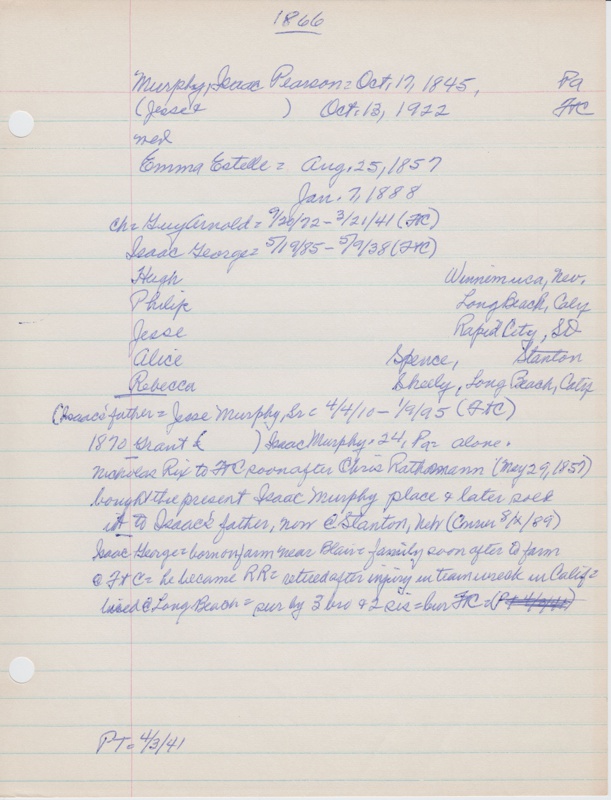 1866
Murphy, Isaac Pearson = Oct. 17, 1845, Pa
(Jesse & ) Oct. 13, 1922 FtC
med
Emma Estelle = Aug. 25, 1857
Jan. 7, 1888
ch = Guy Arnold = 9/20/72 - 3/21/41 (FtC)
Isaac George = 5/19/85 - 5/9/38 (FtC)
Hugh Winnemuca, Nev.
Philip Long Beach, Calif
Jesse Rapid City, SD
Alice Spence, Stanton
Rebecca Sheely, Long Beach, Calif
(Isaac's father = Jesse Murphy, Sr = 4/4/10 - 1/9/95 (FtC)
1870 Grant ) Isaac Murphy, 24, Pa = alone.
Nicholas Rix to FtC soon after Chris Rathmann (May 29, 1857)
bought the present Isaac Murphy place & later sold
it to Isaac's father, now @ Stanton, Neb (
Isaac George = born on farm near Blair = family soon after to farm
@ FtC = he became RR = retired after injury in wreck in Calif =
lived @ Long Beach = sur by 3 bro & 2 sis = bur FtC =
PT = 4/3/41